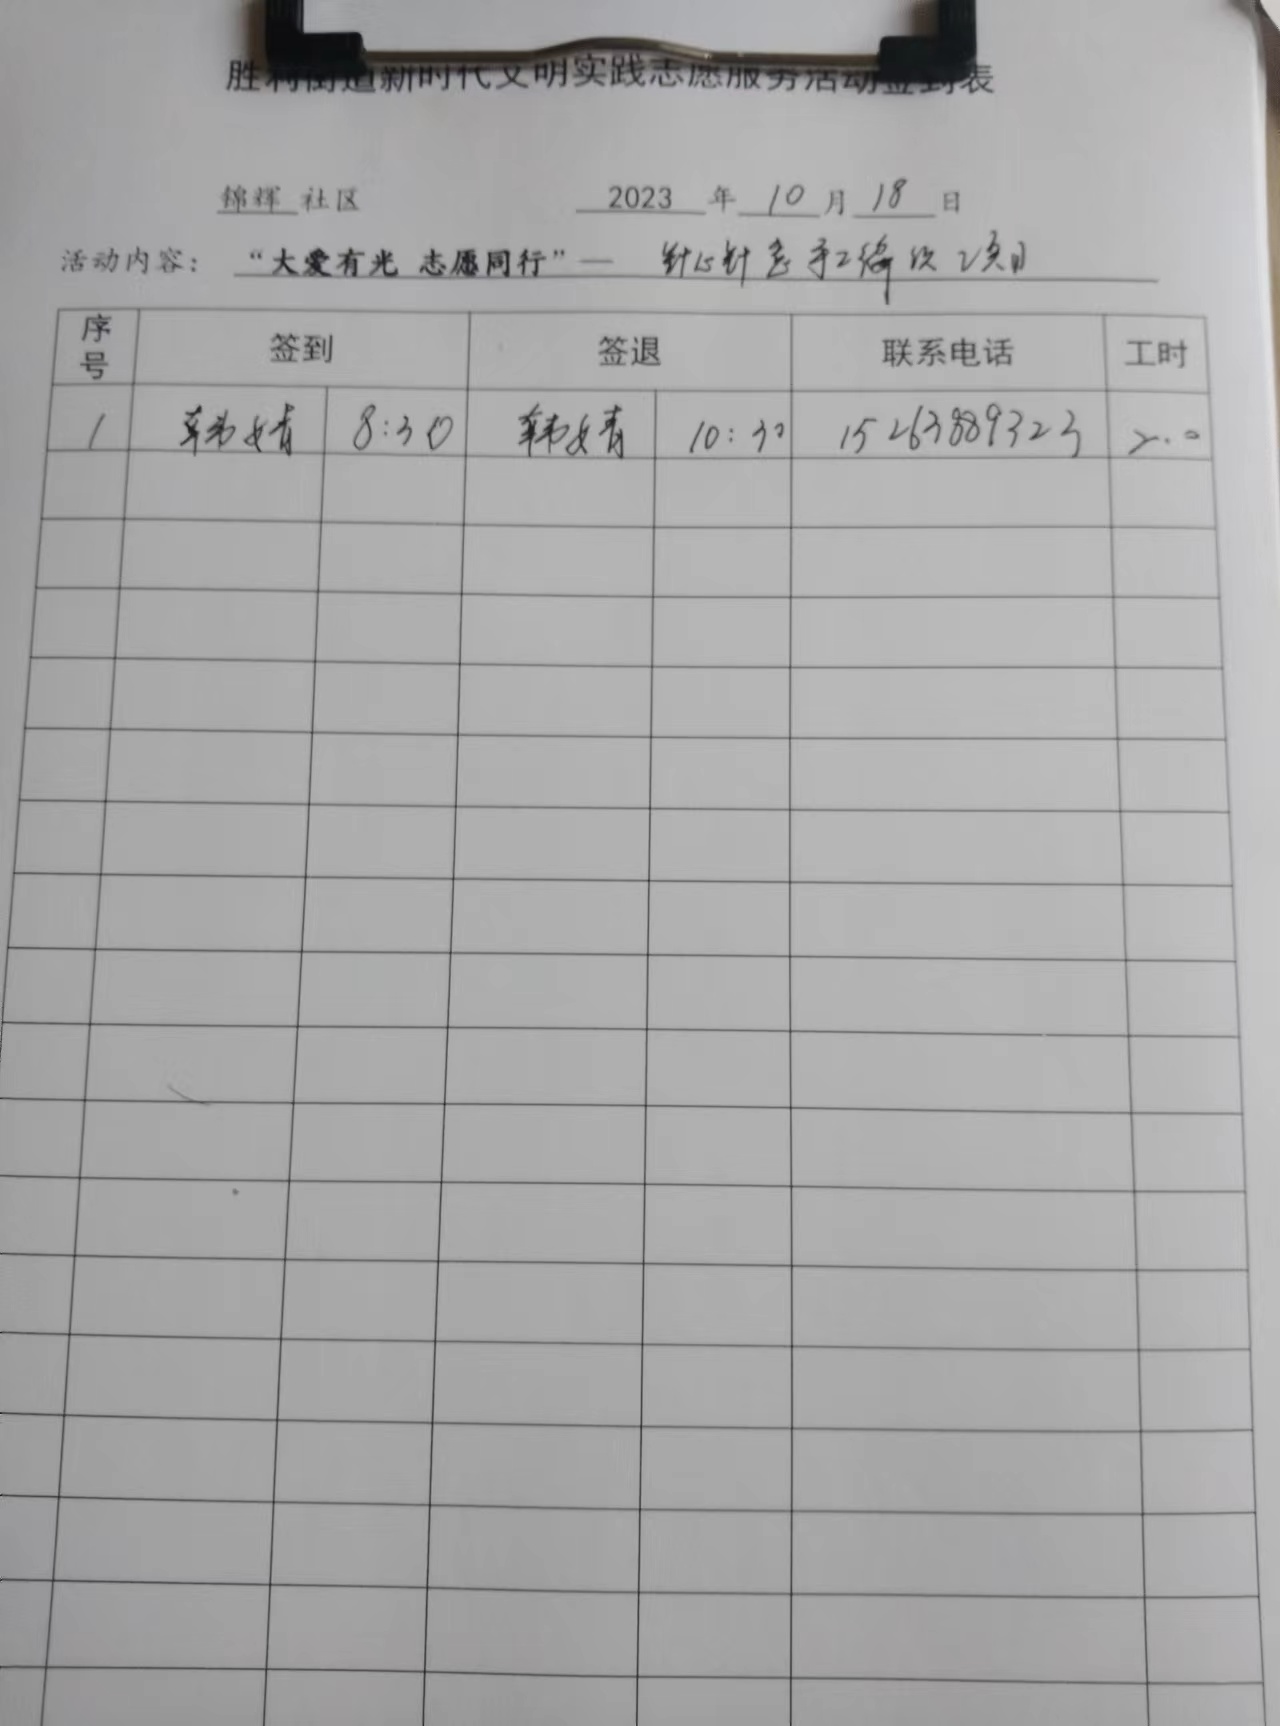 胜利街道新时代文明实践志愿服务活动签到表
锦辉 社区 2023 年 10 月 18 日
活动内容： “大爱有光 志愿同行”— 针心针意手工编织项目
序号 签到 签退 联系电话 工时
1 韩文青 8:30 韩文青 10:30 15263889323 2.0